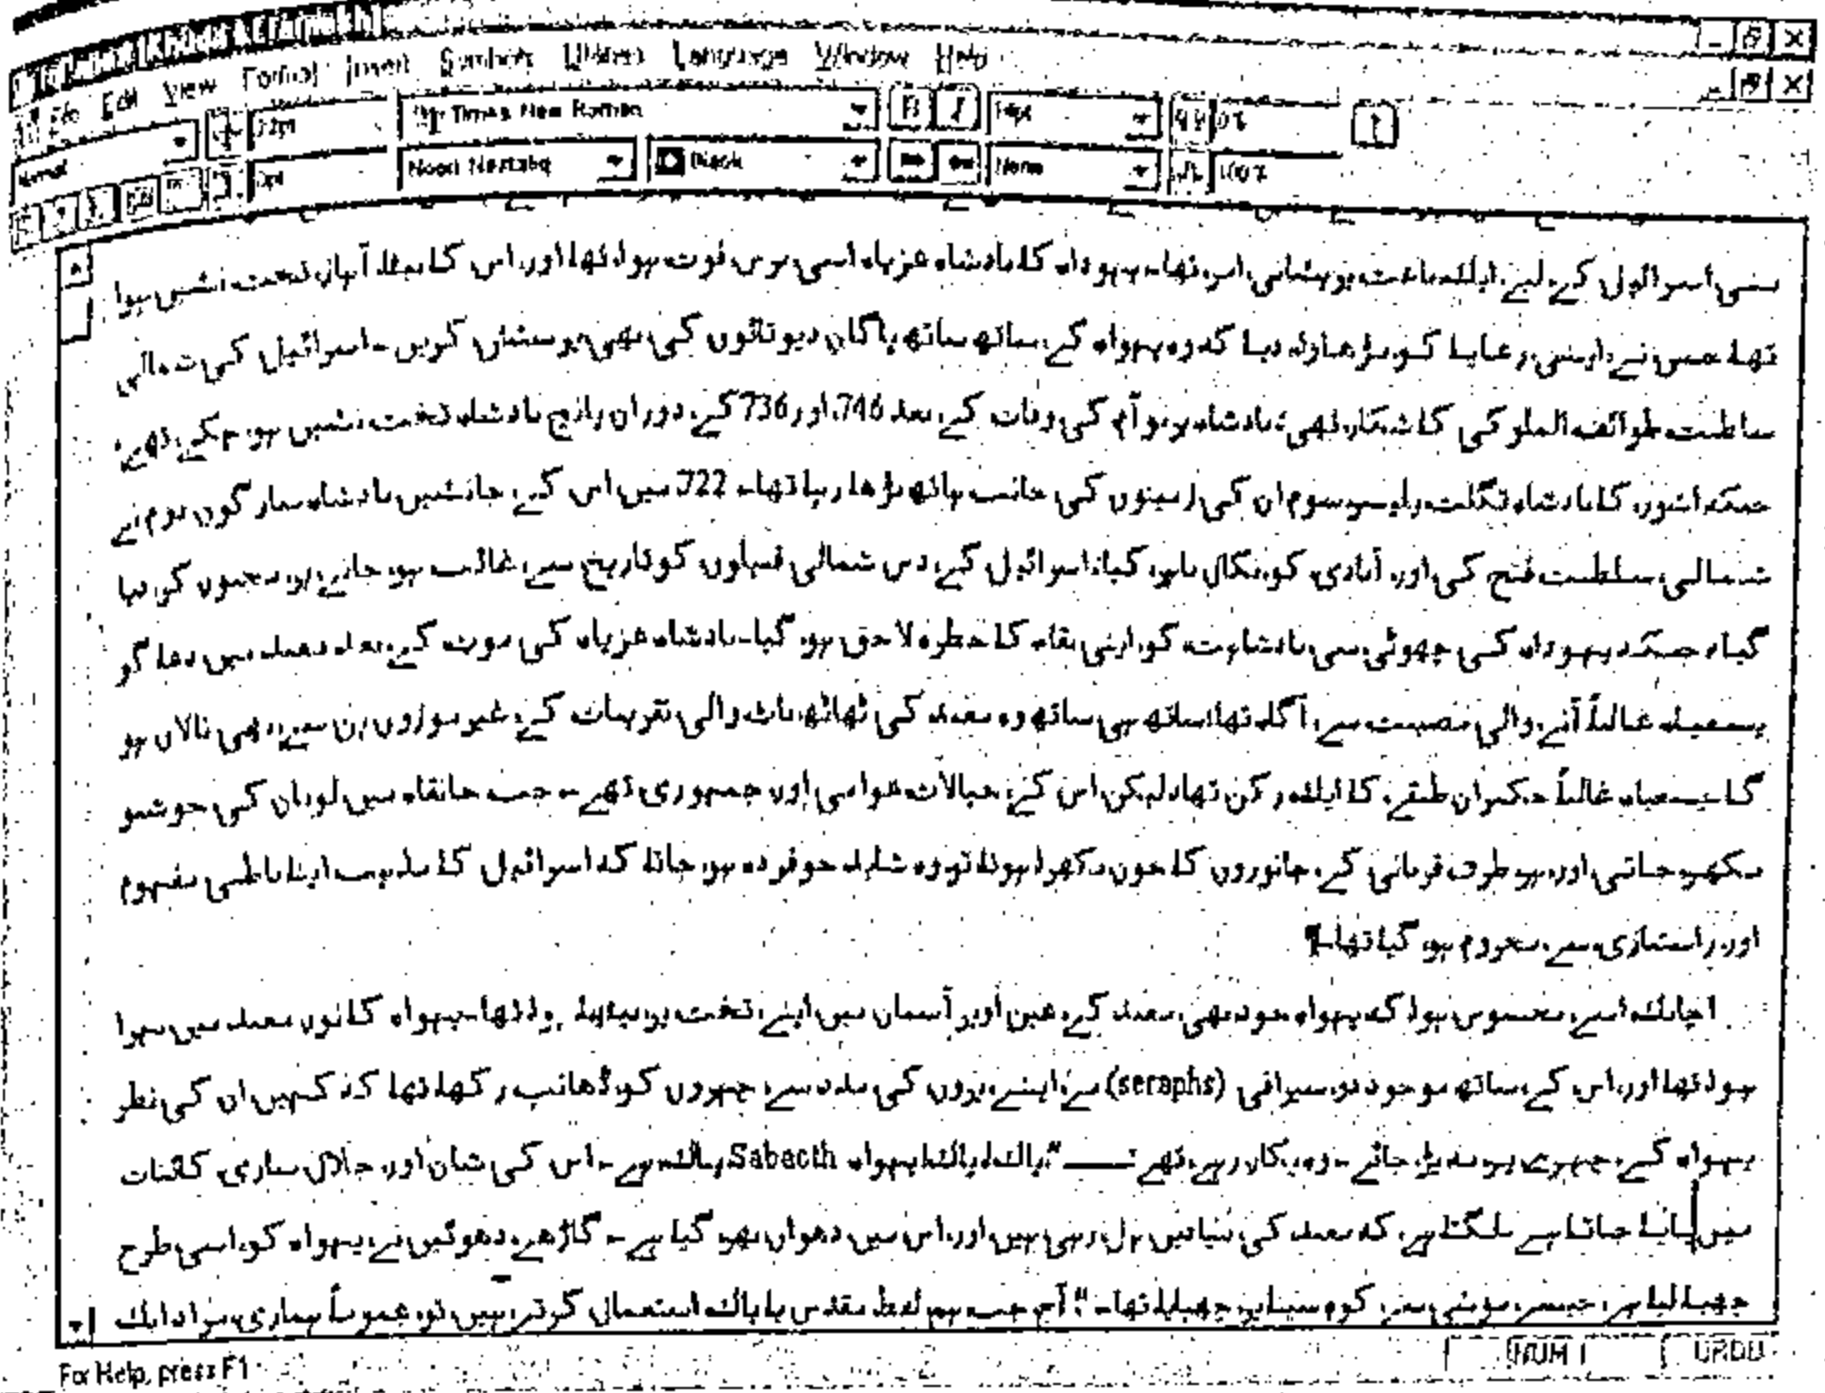 File Edit View Format Insert Symbols Utilities Language Window Help
Normal Times New Roman B I
Noori Nastaliq Black None 100%
بنی اسرائیل کے لیے ایک باعث پریشانی امر تھا۔ یہوداہ کا بادشاہ عزیاہ اسی برس فوت ہوا تھا اور اس کا بیٹا آہاز تخت نشیں ہوا
تھا جس نے اپنی رعایا کو بڑھاوا دیا کہ وہ یہواہ کے ساتھ ساتھ پاگان دیوتائوں کی بھی پرستش کریں۔ اسرائیل کی شمالی
سلطنت طوائف الملوکی کا شکار تھی؛ بادشاہ یربوآم کی وفات کے بعد 746 اور 736 کے دوران پانچ بادشاہ تخت نشیں ہو چکے تھے؛
جبکہ اشور کا بادشاہ تگلت پلیسر سوم ان کی زمینوں کی جانب ہاتھ بڑھا رہا تھا۔ 722 میں اس کے جانشیں بادشاہ سارگون دوم نے
شمالی سلطنت فتح کی اور آبادی کو نکال باہر کیا: اسرائیل کے دس شمالی قبیلوں کو تاریخ سے غائب ہو جانے پر مجبور کر دیا
گیا، جبکہ یہوداہ کی چھوٹی سی بادشاہت کو اپنی بقاء کا خطرہ لاحق ہو گیا۔ بادشاہ عزیاہ کی موت کے بعد معبد میں دعا گو
یسعیاہ غالباً آنے والی مصیبت سے آگاہ تھا؛ ساتھ ہی ساتھ وہ معبد کی ٹھاٹھ باٹ والی تقریبات کے غیر موزوں پن سے بھی نالاں ہو
گا۔ یسعیاہ غالباً حکمران طبقے کا ایک رکن تھا، لیکن اس کے خیالات عوامی اور جمہوری تھے۔ جب خانقاہ میں لوبان کی خوشبو
بکھر جاتی اور ہر طرف قربانی کے جانوروں کا خون بکھرا ہوتا تو وہ شاید خوفزدہ ہو جاتا کہ اسرائیل کا مذہب اپنا باطنی مفہوم
اور راستبازی سے محروم ہو گیا تھا۔
اچانک اسے محسوس ہوا کہ یہواہ خود بھی معبد کے عین اوپر آسمان میں اپنے تخت پر بیٹھا ہوا تھا۔ یہواہ کا نور معبد میں بھرا
ہوا تھا اور اس کے ساتھ موجود دو سیرافی (seraphs) نے اپنے پروں کی مدد سے چہروں کو ڈھانپ رکھا تھا کہ کہیں ان کی نظر
یہواہ کے چہرے پر نہ پڑ جائے۔ وہ پکار رہے تھے :ـــــ "پاک، پاک، یہواہ Sabaoth پاک ہے۔ اس کی شان اور جلال ساری کائنات
میں پایا جاتا ہے۔ لگتا ہے کہ معبد کی بنیادیں ہل رہی ہیں اور اس میں دھواں بھر گیا ہے۔ گاڑھے دھوئیں نے یہواہ کو اسی طرح
چھپا لیا ہے جیسے موسٰی سے کوہ سینا پر چھپایا تھا۔" آج جب ہم لفظ مقدس یا پاک استعمال کرتے ہیں تو عموماً ہماری مراد ایک
For Help, press F1 NUM URDU